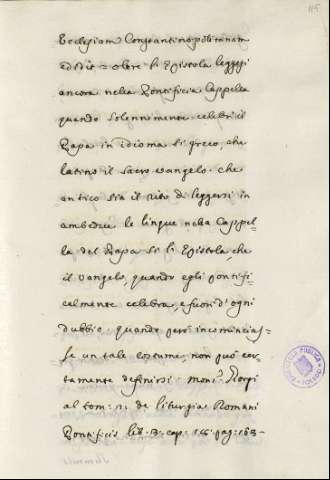 115
Ecclesiam Constantinopolitanam
edidit = oltre l' Epistola leggesi
ancora nella Pontificia Cappella
quando solennemente celebra il
Papa in idioma sì greco, che
latino il sacro vangelo. che
antico sia il rito di leggersi in
ambedue le lingue nella Cappel-
la del Papa sì l' Epistola, che
il vangelo, quando egli pontifi-
calmente celebra, e fuori d' ogni
dubbio. quando però incomincias-
se un tale costume, non può cer-
tamente definirsi. mons.r Giorgi
al tom: di de liturgia Romani
Pontificis lib. cap: pag: 163-
BIBLIOTECA PUBLICA
TOLEDO